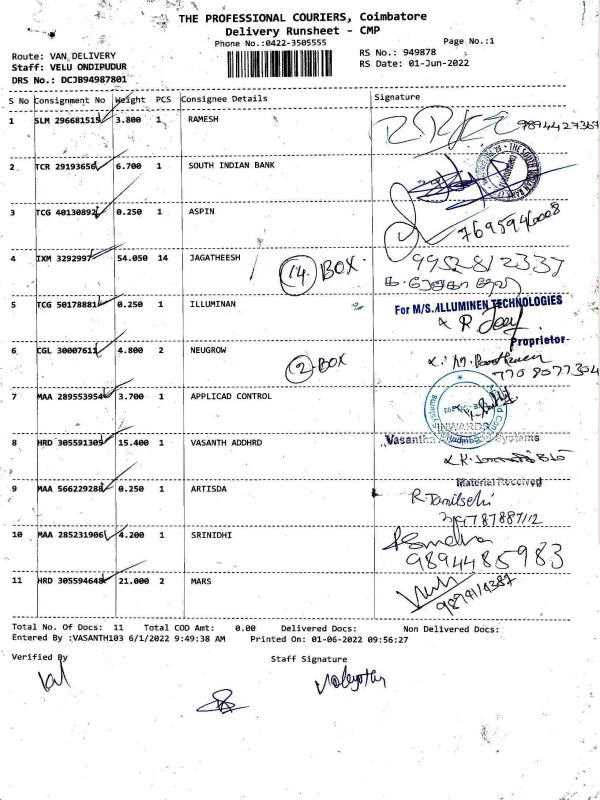 THE PROFESSIONAL COURIERS, Coimbatore
Delivery Runsheet - CMP
Phone No.:0422-3505555
Page No.:1
Route: VAN DELIVERY
RS No.: 949878
Staff: VELU ONDIPUDUR
RS Date: 01-Jun-2022
DRS No.: DCJB94987801
S No Consignment No Weight PCS Consignee Details Signature
1 SLM 296681515 3.800 1 RAMESH
9894427367
2 TCR 29193656 6.700 1 SOUTH INDIAN BANK
3 TCG 40130892 0.250 1 ASPIN
7695946008
4 IXM 3292997 54.050 14 JAGATHEESH
14 BOX
9952812337
5 TCG 50178881 0.250 1 ILLUMINAN
For M/S.ALLUMINEN TECHNOLOGIES
Proprietor
6 CGL 30007611 4.800 2 NEUGROW
2 BOX
7708077304
7 MAA 289553954 3.700 1 APPLICAD CONTROL
INWARDS
8 HRD 305591305 15.400 1 VASANTH ADDHRD
9 MAA 566229288 0.250 1 ARTISDA
Material Received
10 MAA 285231906 4.200 1 SRINIDHI
9894485983
11 HRD 305594648 21.000 2 MARS
Total No. Of Docs: 11 Total COD Amt: 0.00 Delivered Docs: Non Delivered Docs:
Entered By :VASANTH103 6/1/2022 9:49:38 AM Printed On: 01-06-2022 09:56:27
Verified By
Staff Signature